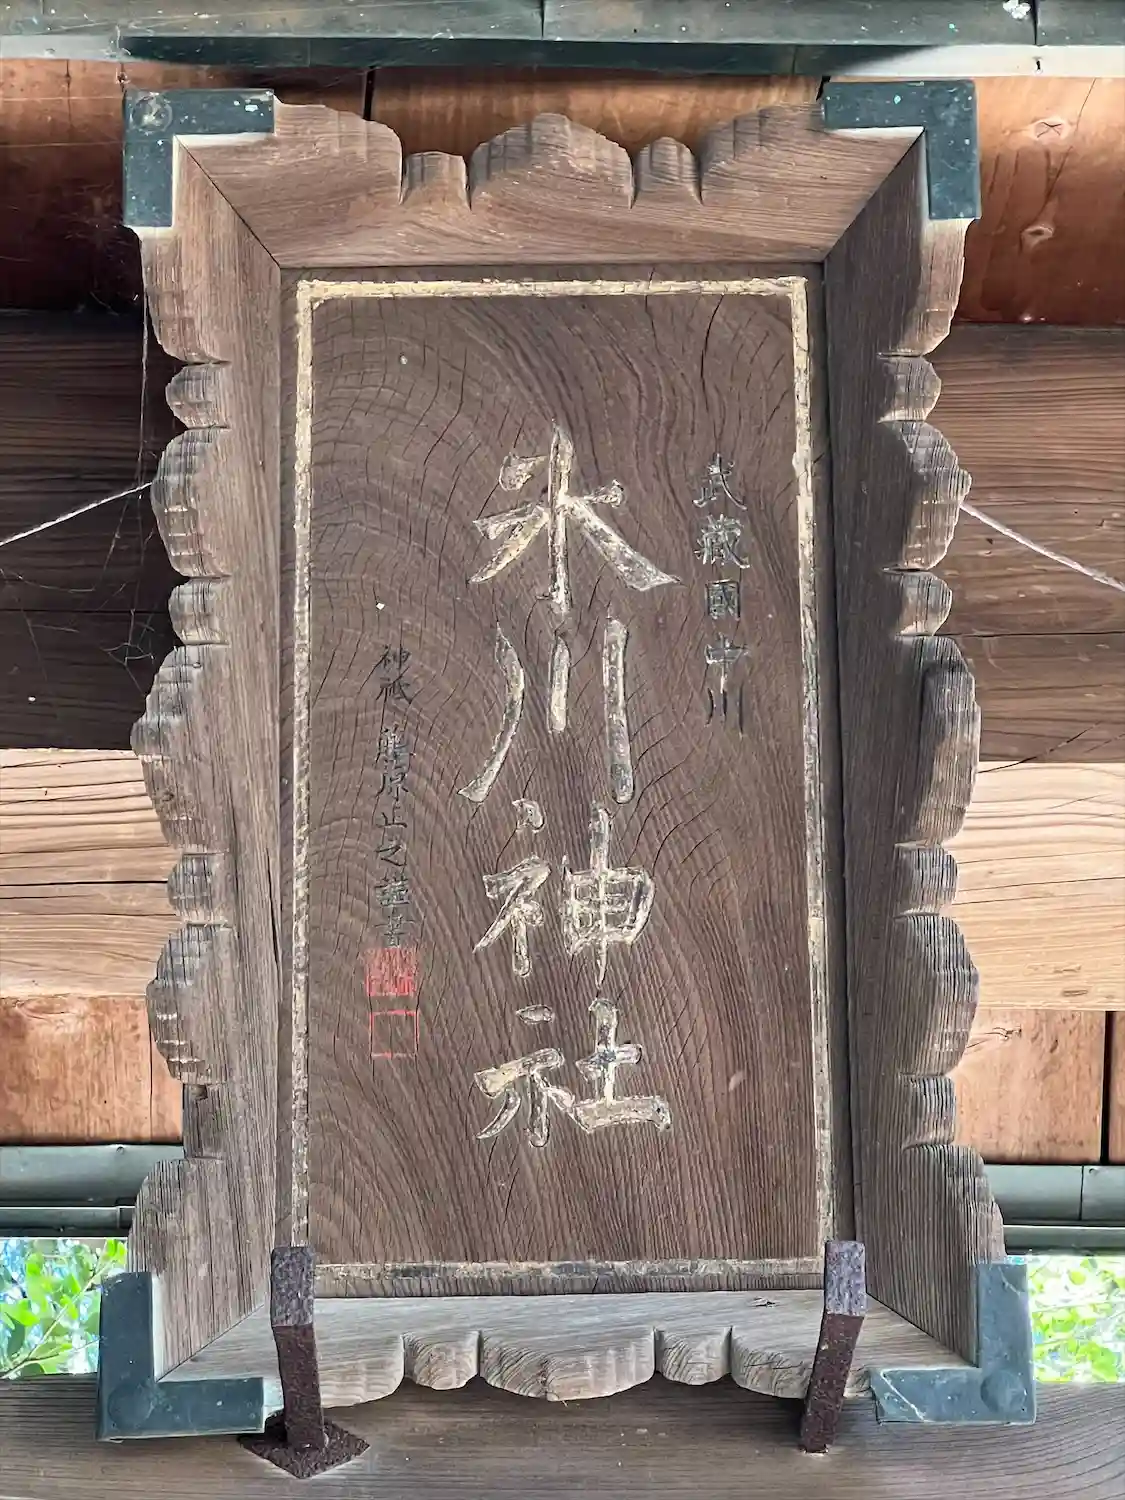 武藏國中川
氷川神社
神祇 藤原正之謹書